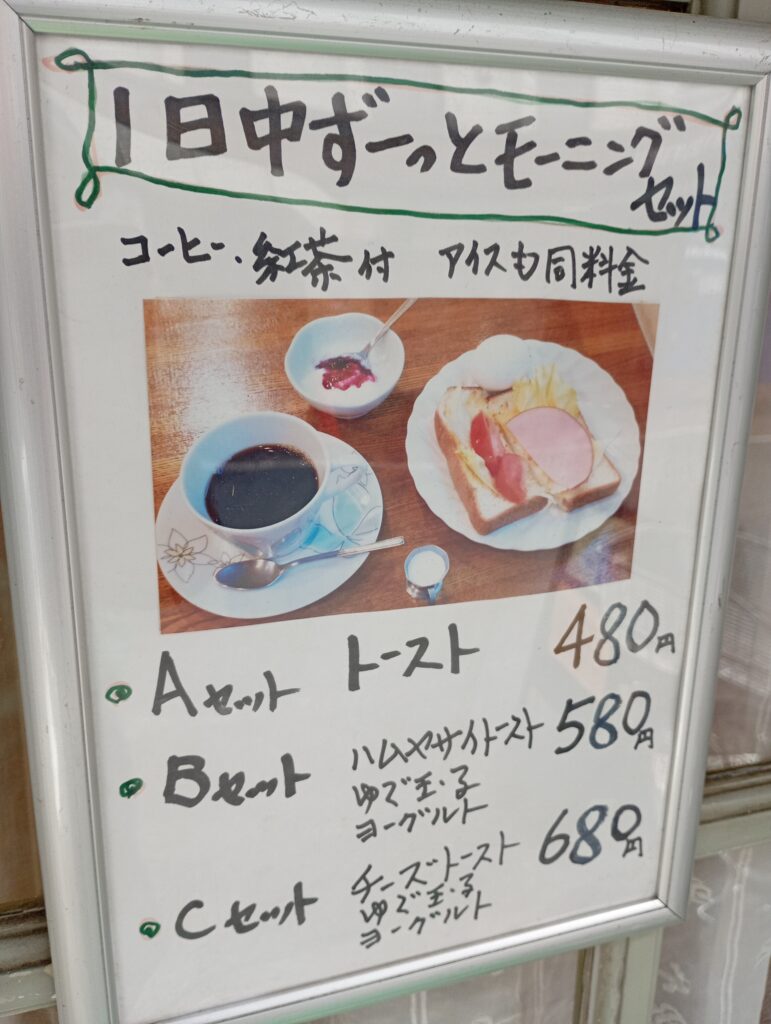 1日中ずーっとモーニング
セット
コーヒー、紅茶付 アイスも同料金
Aセット トースト 480円
Bセット ハムヤサイトースト 580円
ゆで玉子
ヨーグルト
Cセット チーズトースト 680円
ゆで玉子
ヨーグルト